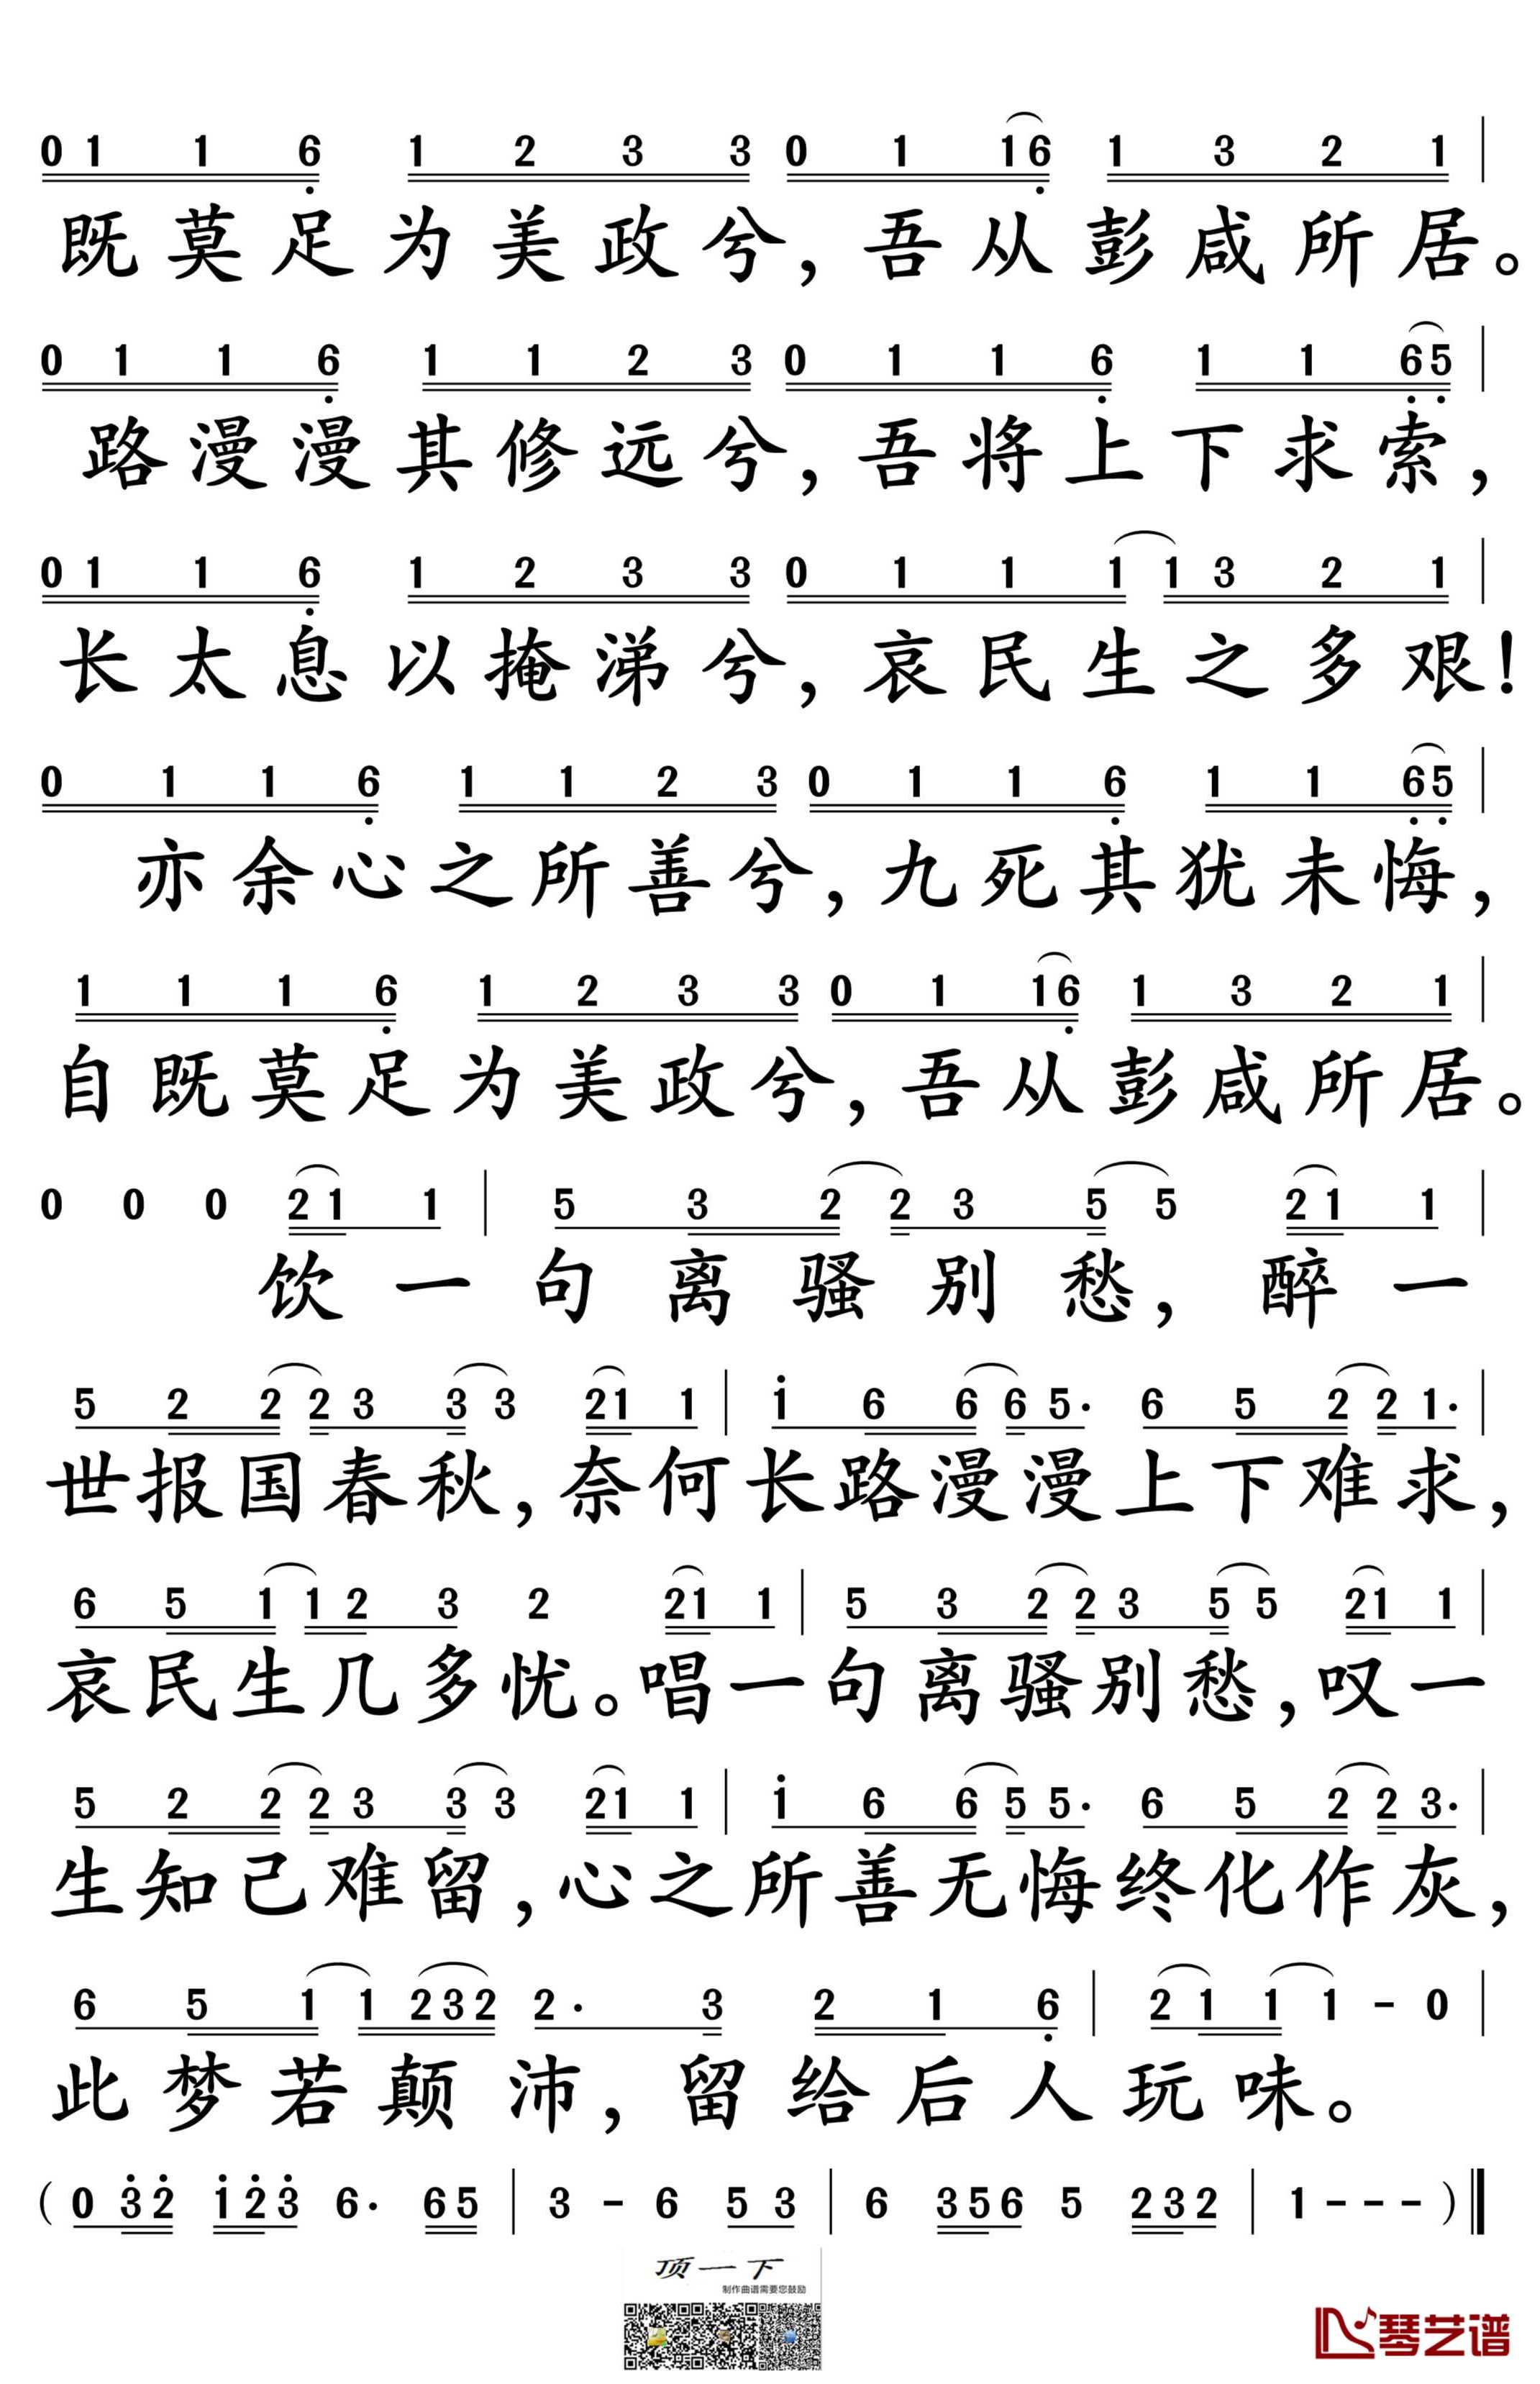 0 1 1 6 1 2 3 3 0 1 1 6 1 3 2 1
既莫足为美政兮，吾从彭咸所居。
0 1 1 6 1 1 2 3 0 1 1 6 1 1 6 5
路漫漫其修远兮，吾将上下求索，
0 1 1 6 1 2 3 3 0 1 1 1 1 3 2 1
长太息以掩涕兮，哀民生之多艰！
0 1 1 6 1 1 2 3 0 1 1 6 1 1 6 5
亦余心之所善兮，九死其犹未悔，
1 1 1 6 1 2 3 3 0 1 1 6 1 3 2 1
自既莫足为美政兮，吾从彭咸所居。
0 0 0 2 1 1 | 5 3 2 2 3 5 5 2 1 1
饮一句离骚别愁，醉一
5 2 2 2 3 3 3 2 1 1 | 1 6 6 6 5· 6 5 2 2 1·
世报国春秋，奈何长路漫漫上下难求，
6 5 1 1 2 3 2 2 1 1 | 5 3 2 2 3 5 5 2 1 1
哀民生几多忧。唱一句离骚别愁，叹一
5 2 2 2 3 3 3 2 1 1 | 1 6 6 5 5· 6 5 2 2 3·
生知己难留，心之所善无悔终化作灰，
6 5 1 1 2 3 2 2· 3 2 1 6 | 2 1 1 1 - 0
此梦若颠沛，留给后人玩味。
( 0 3 2 1 2 3 6· 6 5 | 3 - 6 5 3 | 6 3 5 6 5 2 3 2 | 1 - - - )
顶一下
制作曲谱需要您鼓励
琴艺谱